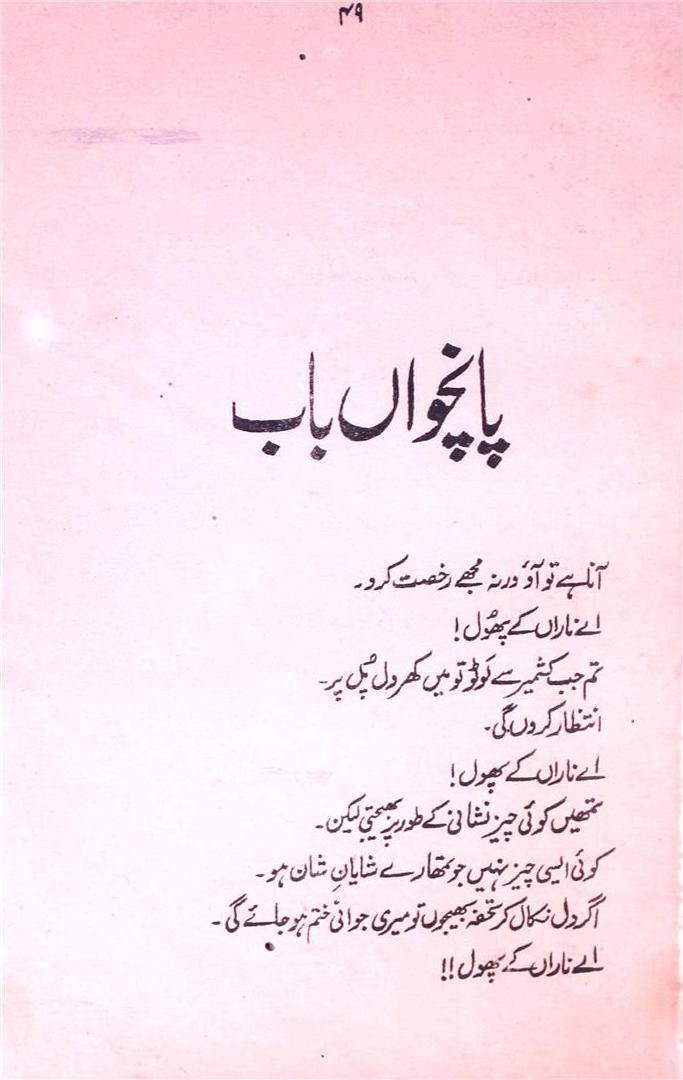 ۴۹
پانچواں باب
آنا ہے تو آؤ ورنہ مجھے رخصت کرو۔
اے ناراں کے پھُول!
تم جب کشمیر سے لَوٹو تو میں کھردل پُل پر۔
انتظار کروں گی۔
اے ناراں کے پھول!
تمھیں کوئی چیز نشانی کے طور پر بھیجتی لیکن۔
کوئی ایسی چیز نہیں جو تمھارے شایانِ شان ہو۔
اگر دل نکال کر تحفہ بھیجوں تو میری جوانی ختم ہو جائے گی۔
اے ناراں کے پھول!!